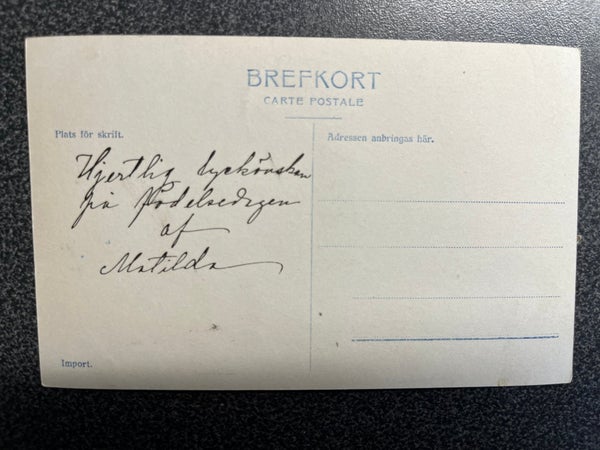 BREFKORT
CARTE POSTALE
Plats för skrift.
Adressen anbringas här.
Hjertlig lyckönskan
på Födelsedagen
af
Matilda
Import.